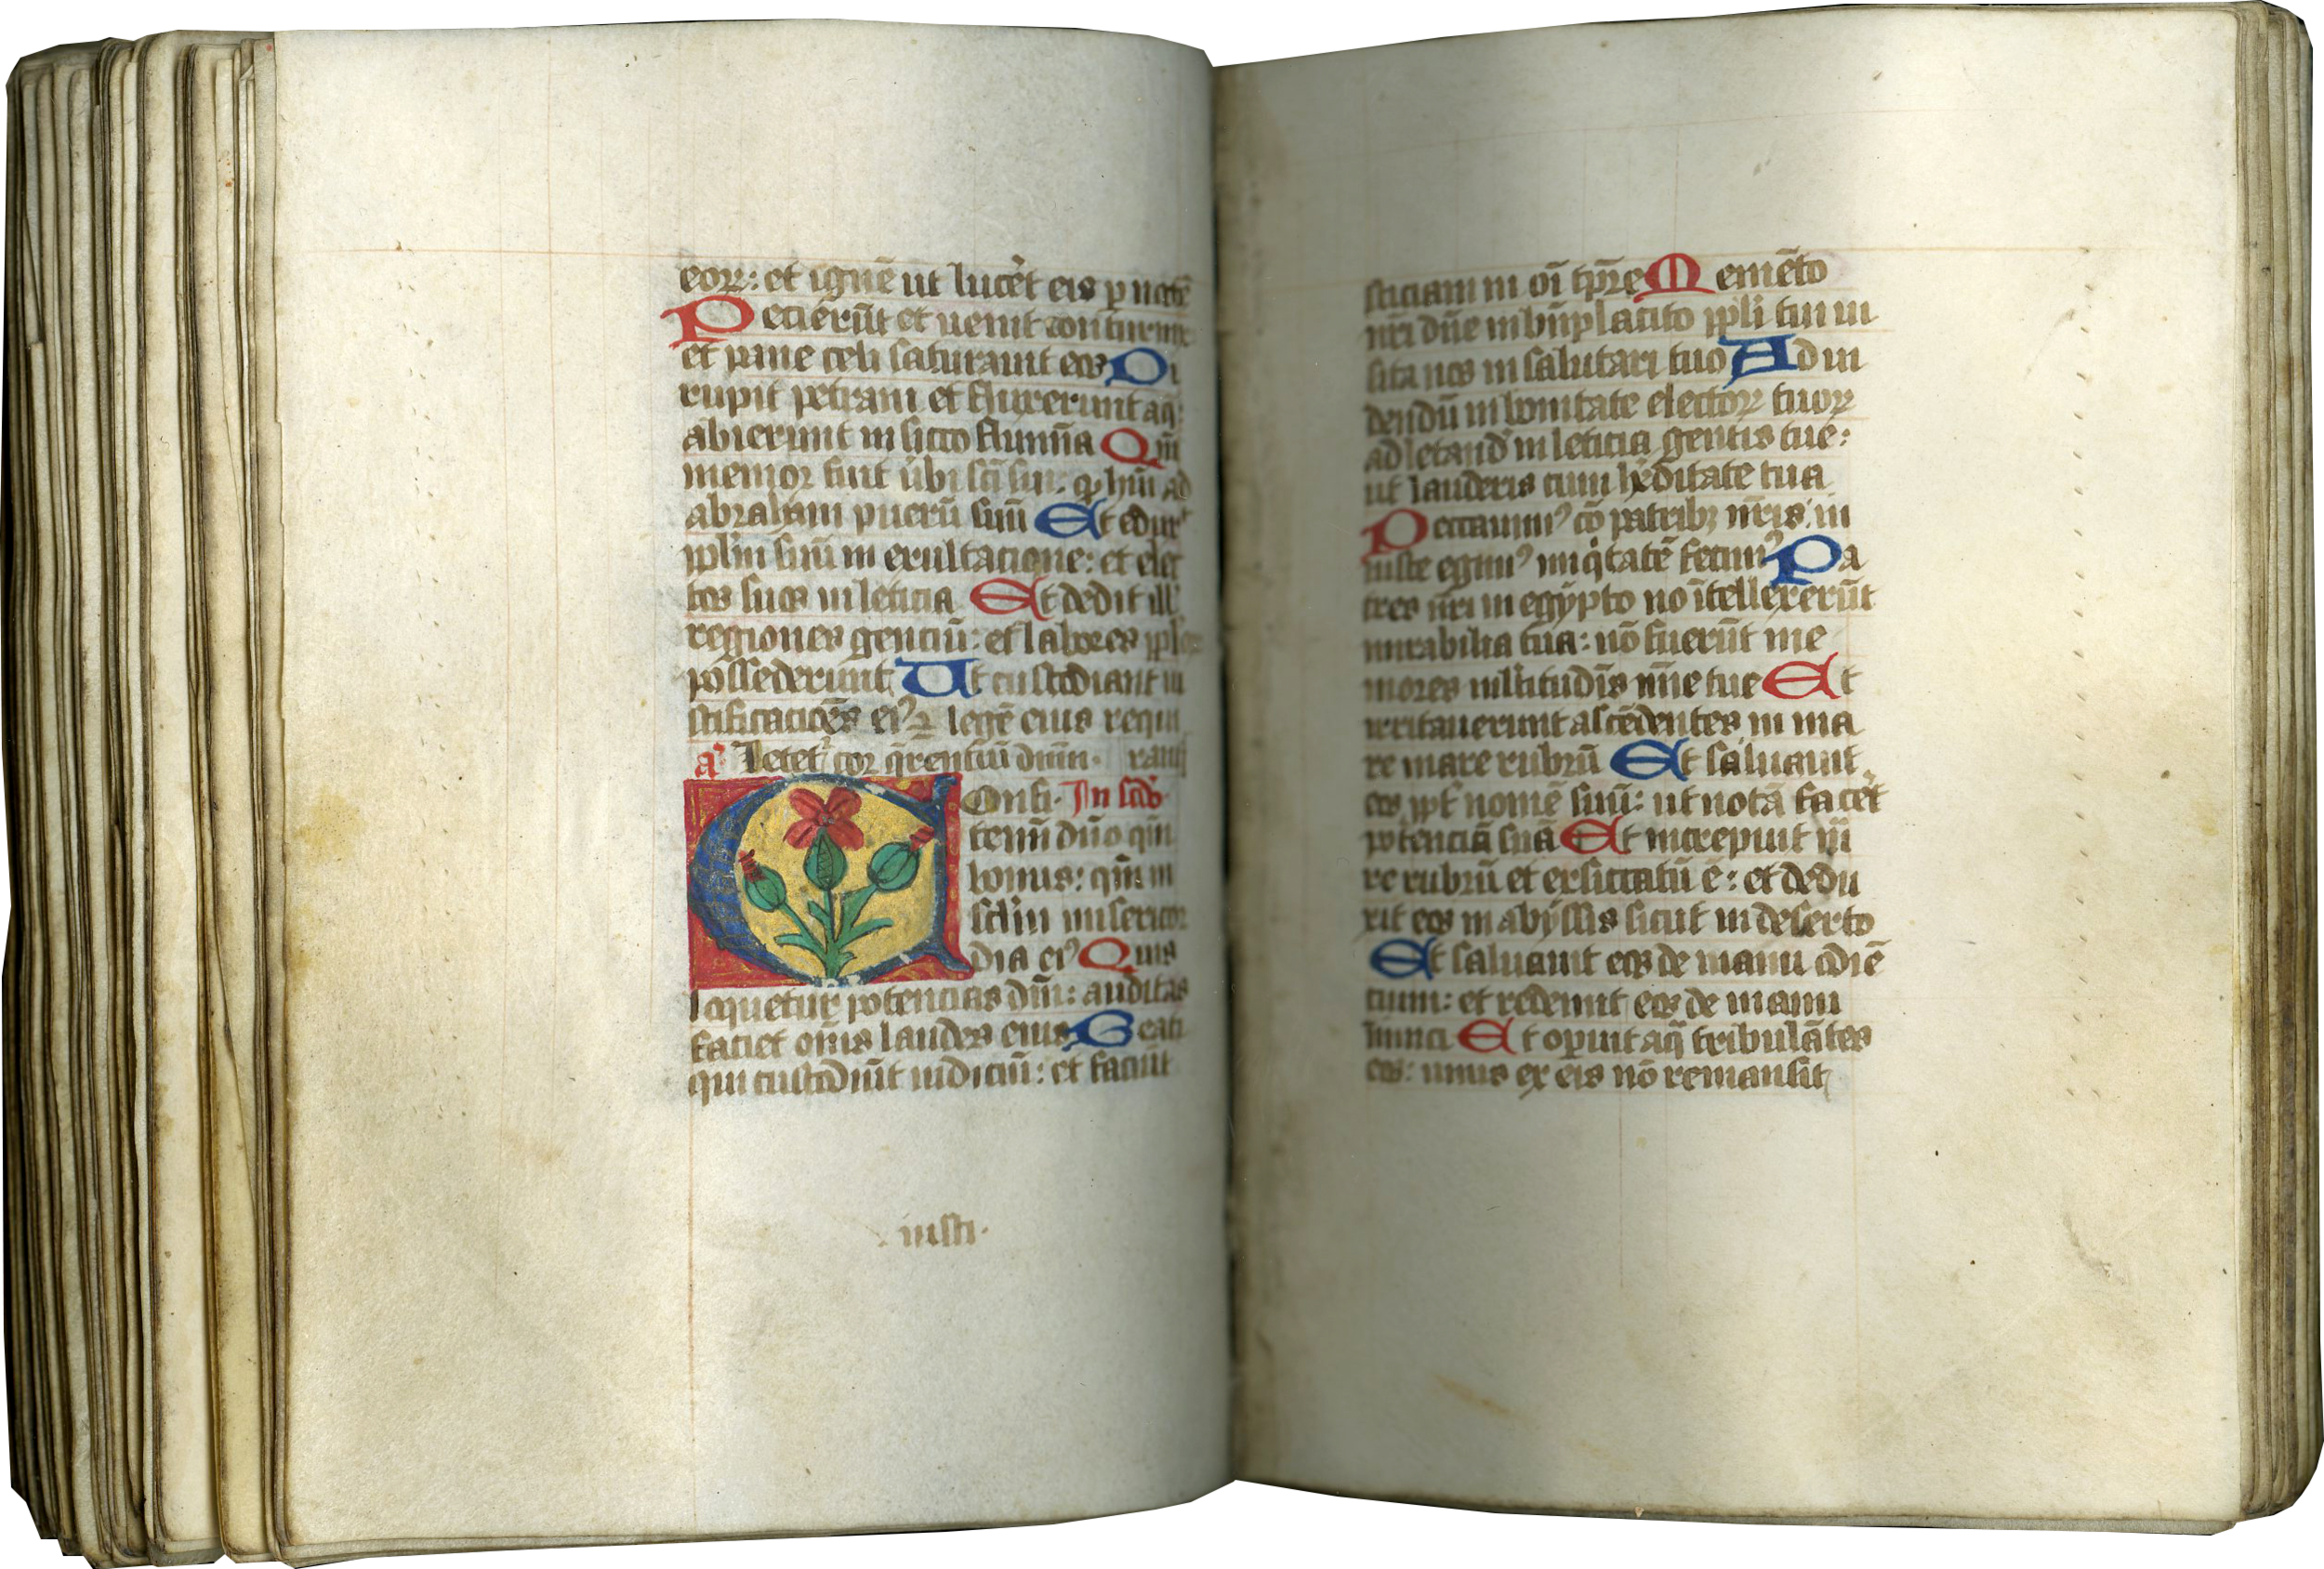 eoꝝ: et ignē ut lucēt eis ꝑ noctē
Pecierūt et uenit coturnix
et pane celi saturauit eos Di
rupit petram et fluxerunt aq̄:
abierunt in sicco flumīa Qm̄
memor fuit ūbi sc̄i sui: qḥuit ad
abraham puerū suū Et edux̄
ppl̄m suū in exultacione: et elec
tos suos in leticia Et dedit ill'
regiones genciū: et labores ppl'oꝝ
possederunt Ut custodiant iu
stificacōes ei⁹ ⁊ legē eius requi
a Letet᷑ cor q̄rentiū dnm̄. rant
Confi. In sabb'o
temī dn̄o qm̄
bonus: qm̄ in
sclm̄ misericor
dia ei⁹ Quis
loquetur potencias dn̄i: auditas
faciet om̄s laudes eius Beati
qui custodiūt iudiciū: et faciūt
iusti.
sticiam in oī tp̄re Memēto
nr̄i dn̄e in bn̄placito ppl̄i tui ui
sita nos in salutari tuo Ad ui
dendū in bonitate electoꝝ tuoꝝ
ad letand' in leticia gentis tue:
ut lauderis cum hēditate tua
Peccauim⁹ cō patribꝫ nr̄is: in
iuste egim⁹ iniq̇tatē fecim⁹ Pa
tres nr̄i in egypto nō ītellexerūt
mirabilia tua: nō fuerūt me
mores ml̄titudīs mīe tue Et
irritauerunt ascēdentes in ma
re mare rubrū Et saluauit
eos ppt' nomē suū: ut notā facēt
potenciā suā Et increpuit ma
re rubrū et exsiccatū ē: et dedu
xit eos in abyssis sicut in deserto
Et saluauit eos de manu odiē
tium: et redemit eos de manu
inimici Et opuit aq̄ tribulātes
eos: unus ex eis nō remansit